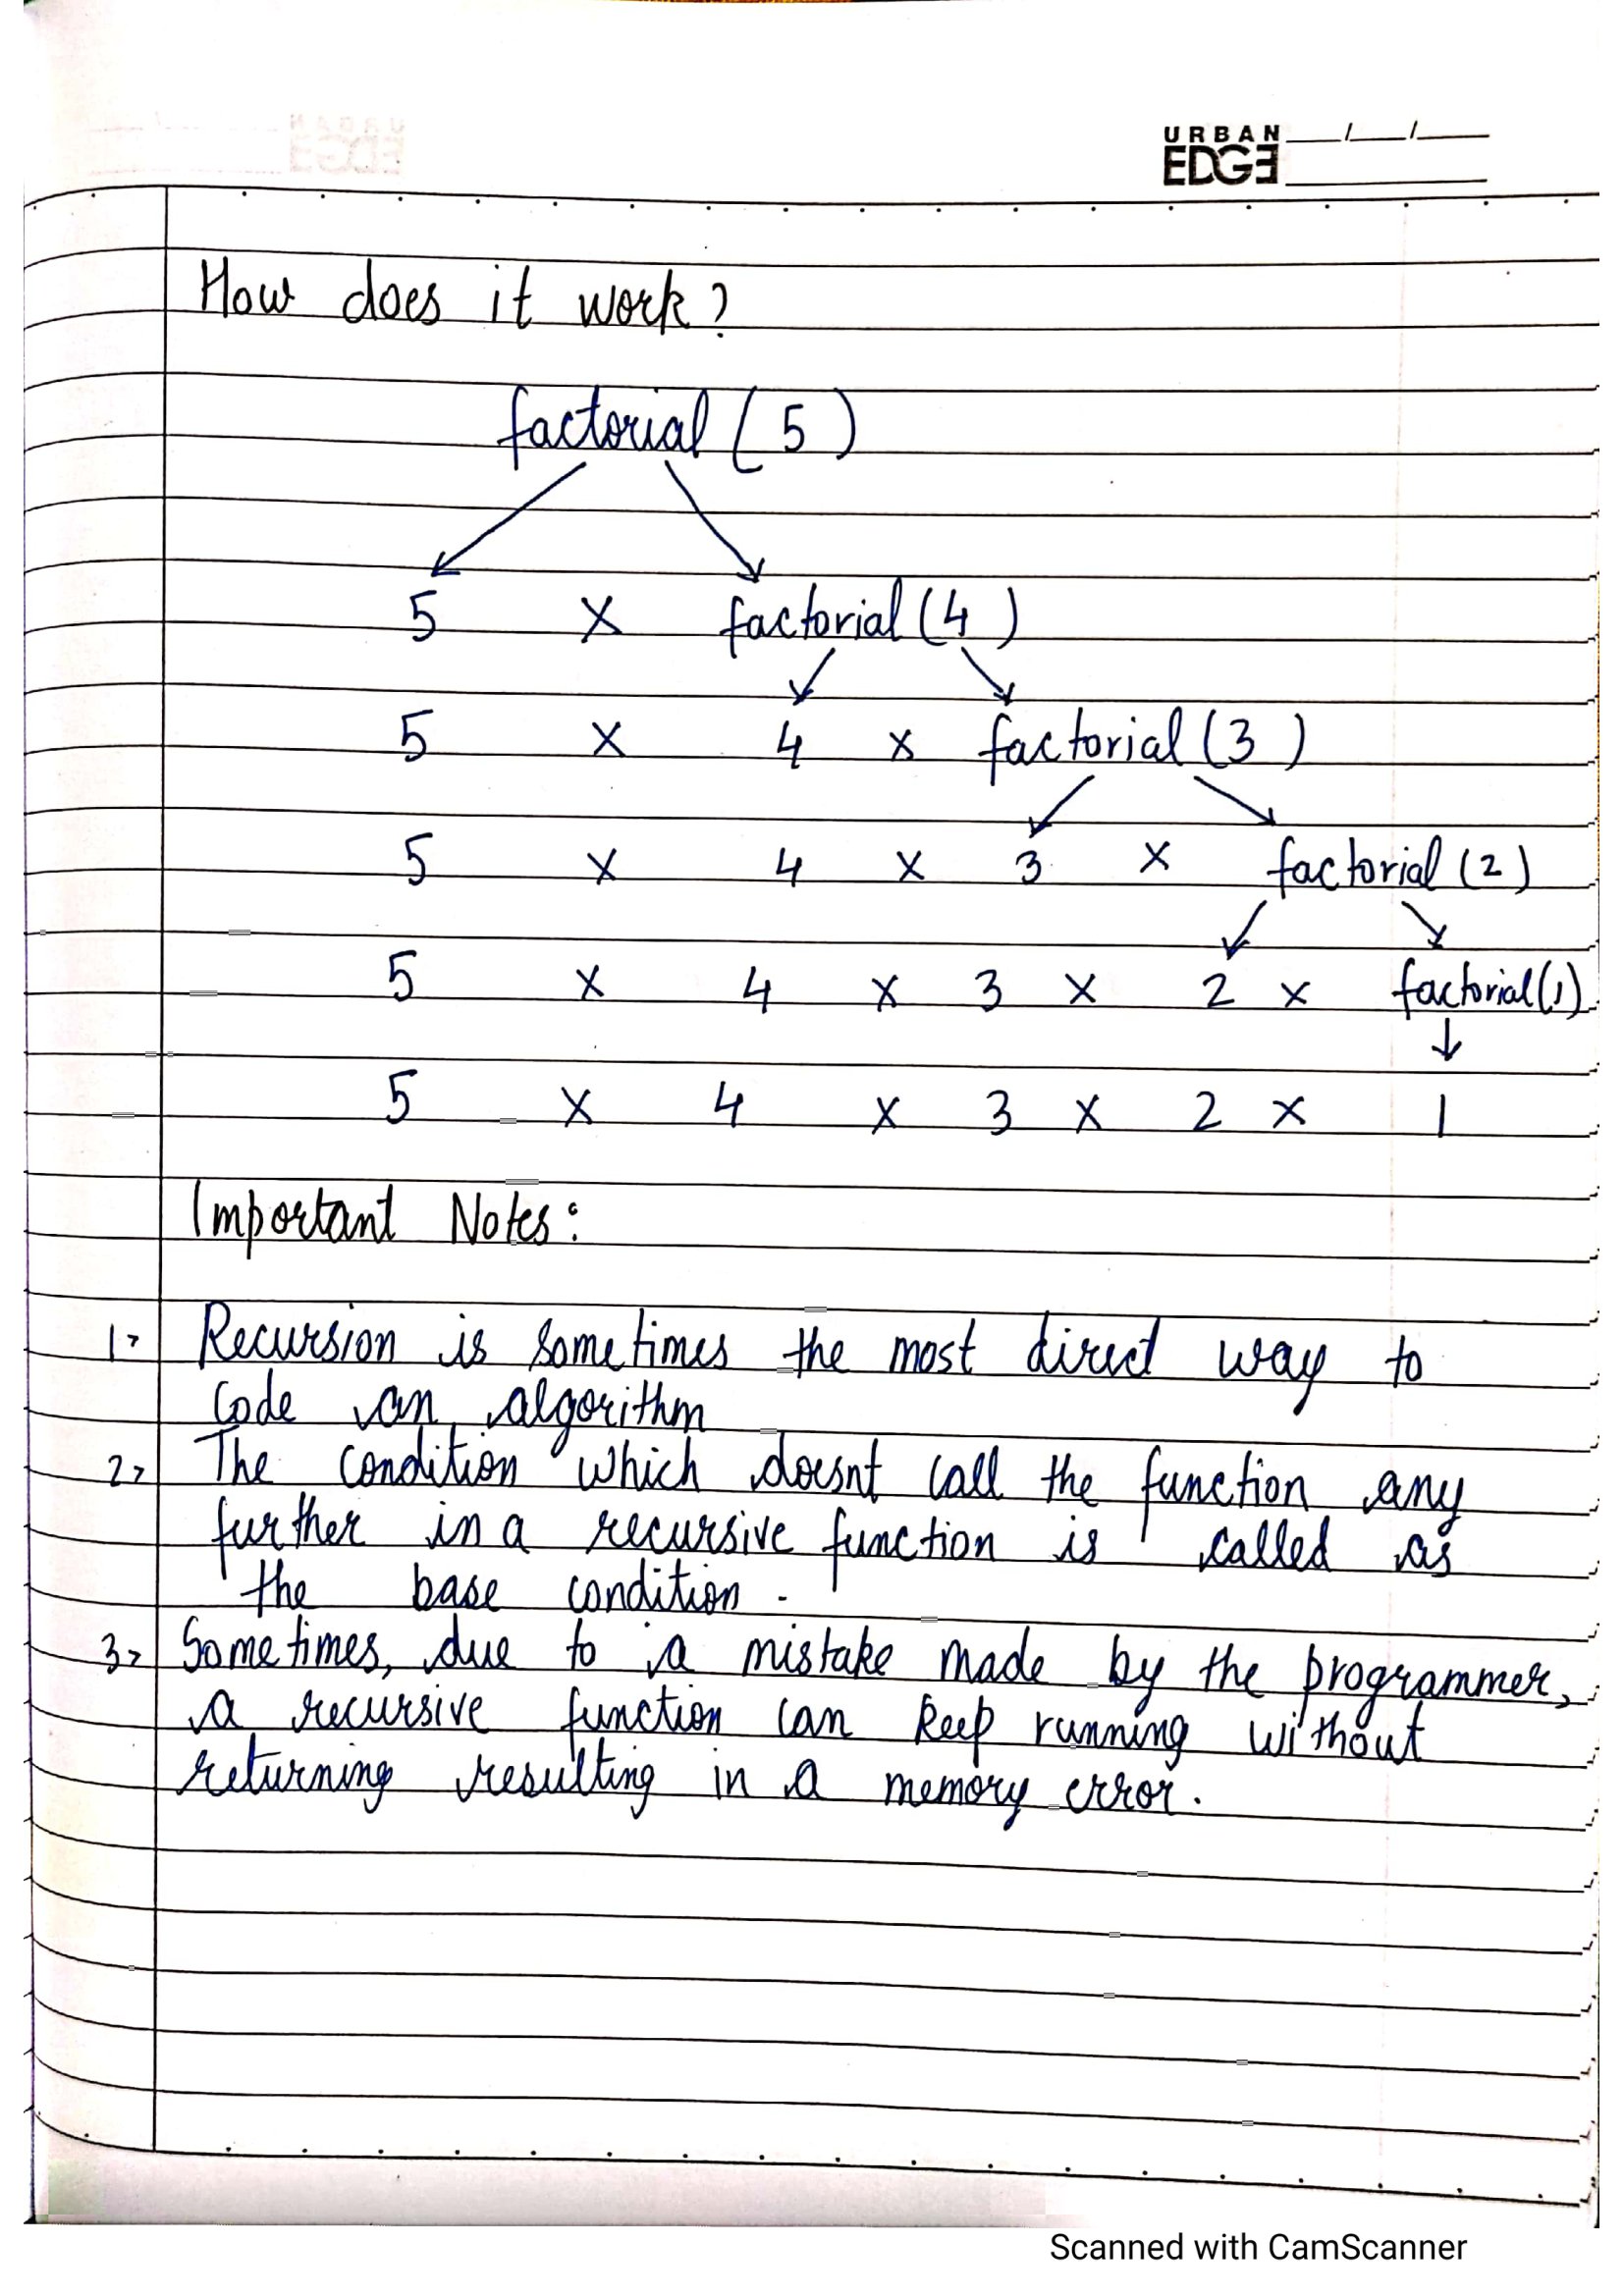 URBAN
EDGE
How does it work?
factorial (5)
5 x factorial (4)
5 x 4 x factorial (3)
5 x 4 x 3 x factorial (2)
5 x 4 x 3 x 2 x factorial (1)
5 x 4 x 3 x 2 x 1
Important Notes:
1> Recursion is sometimes the most direct way to
code an algorithm
2> The condition which doesnt call the function any
further in a recursive function is called as
the base condition.
3> Sometimes, due to a mistake made by the programmer,
a recursive function can keep running without
returning resulting in a memory error.
Scanned with CamScanner